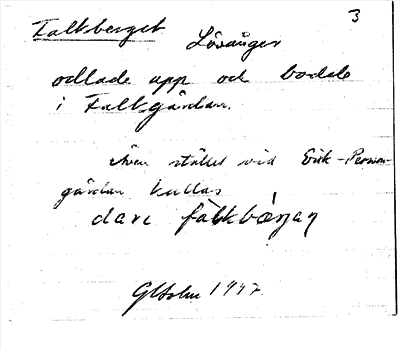 3
Falkberget Lösånger
odlade upp och bodde
i Falkgården.
Även stället vid Erik-Persson-
gården kallas
dave falkbærjan
GHolm 1947